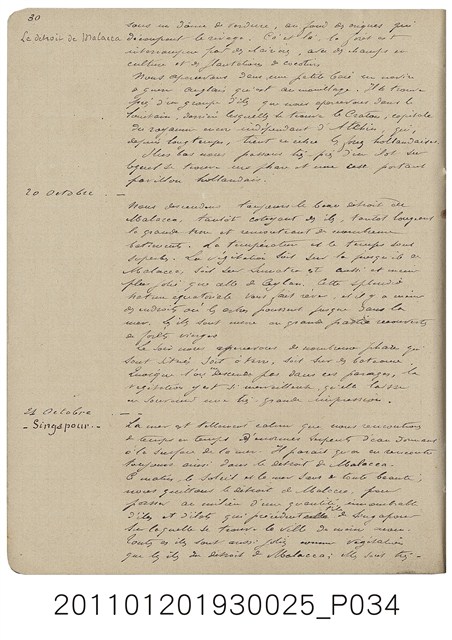 30
sous un dôme de verdure, au fond des criques qui
Le détroit de Malacca découpent le rivage. Çà et là, la forêt est
interrompue par des clairières, avec des champs en
culture et des plantations de cocotiers.
Nous apercevons dans une petite baie un navire
de guerre anglais qui est au mouillage. Il se trouve
près d'un groupe d'îles que nous apercevons dans le
lointain, derrière lesquelles se trouve le Craton, capitale
du royaume encore indépendant d'Atchin, qui,
depuis longtemps, tient en échec les hollandaises.
Plus bas nous passons très près d'un îlot sur
lequel se trouve un phare et une case portant
pavillon hollandais.
20 Octobre. —
Nous descendons toujours le beau détroit de
Malacca, tantôt côtoyant des îles, tantôt longeant
la grande terre et rencontrant de nombreux
bâtiments. La température et le temps sont
superbes. La végétation soit sur la presqu'île de
Malacca, soit sur Sumatra est aussi et même
plus jolie que celle de Ceylan. Cette splendide
nature équatoriale vous fait rêver et il y a même
des endroits où les arbres poussent jusque dans la
mer. Les îles sont même en grande partie recouvertes
de forêts vierges.
Le soir nous apercevons de nombreux phares qui
sont situés soit à terre, soit sur des bateaux.
Quoique l'on descende pas dans ces parages, la
végétation y est si merveilleuse qu'elle laisse
un souvenir une très grande impression.
21 Octobre —
- Singapour. -
La mer est tellement calme que nous rencontrons
de temps en temps d'énormes serpents d'eau dormant
à la surface de la mer. Il paraît qu'on en rencontre
toujours aussi dans le détroit de Malacca.
Ce matin, le soleil et la mer sont de toute beauté;
nous quittons le détroit de Malacca, pour
passer au milieu d'une quantité innombrable
d'îles et d'îlots qui précèdent l'île de Singapour
sur laquelle se trouve la ville du même nom.
Toutes ces îles sont aussi jolies comme végétation
que les îles du détroit de Malacca; elles sont très-
201101201930025_P034